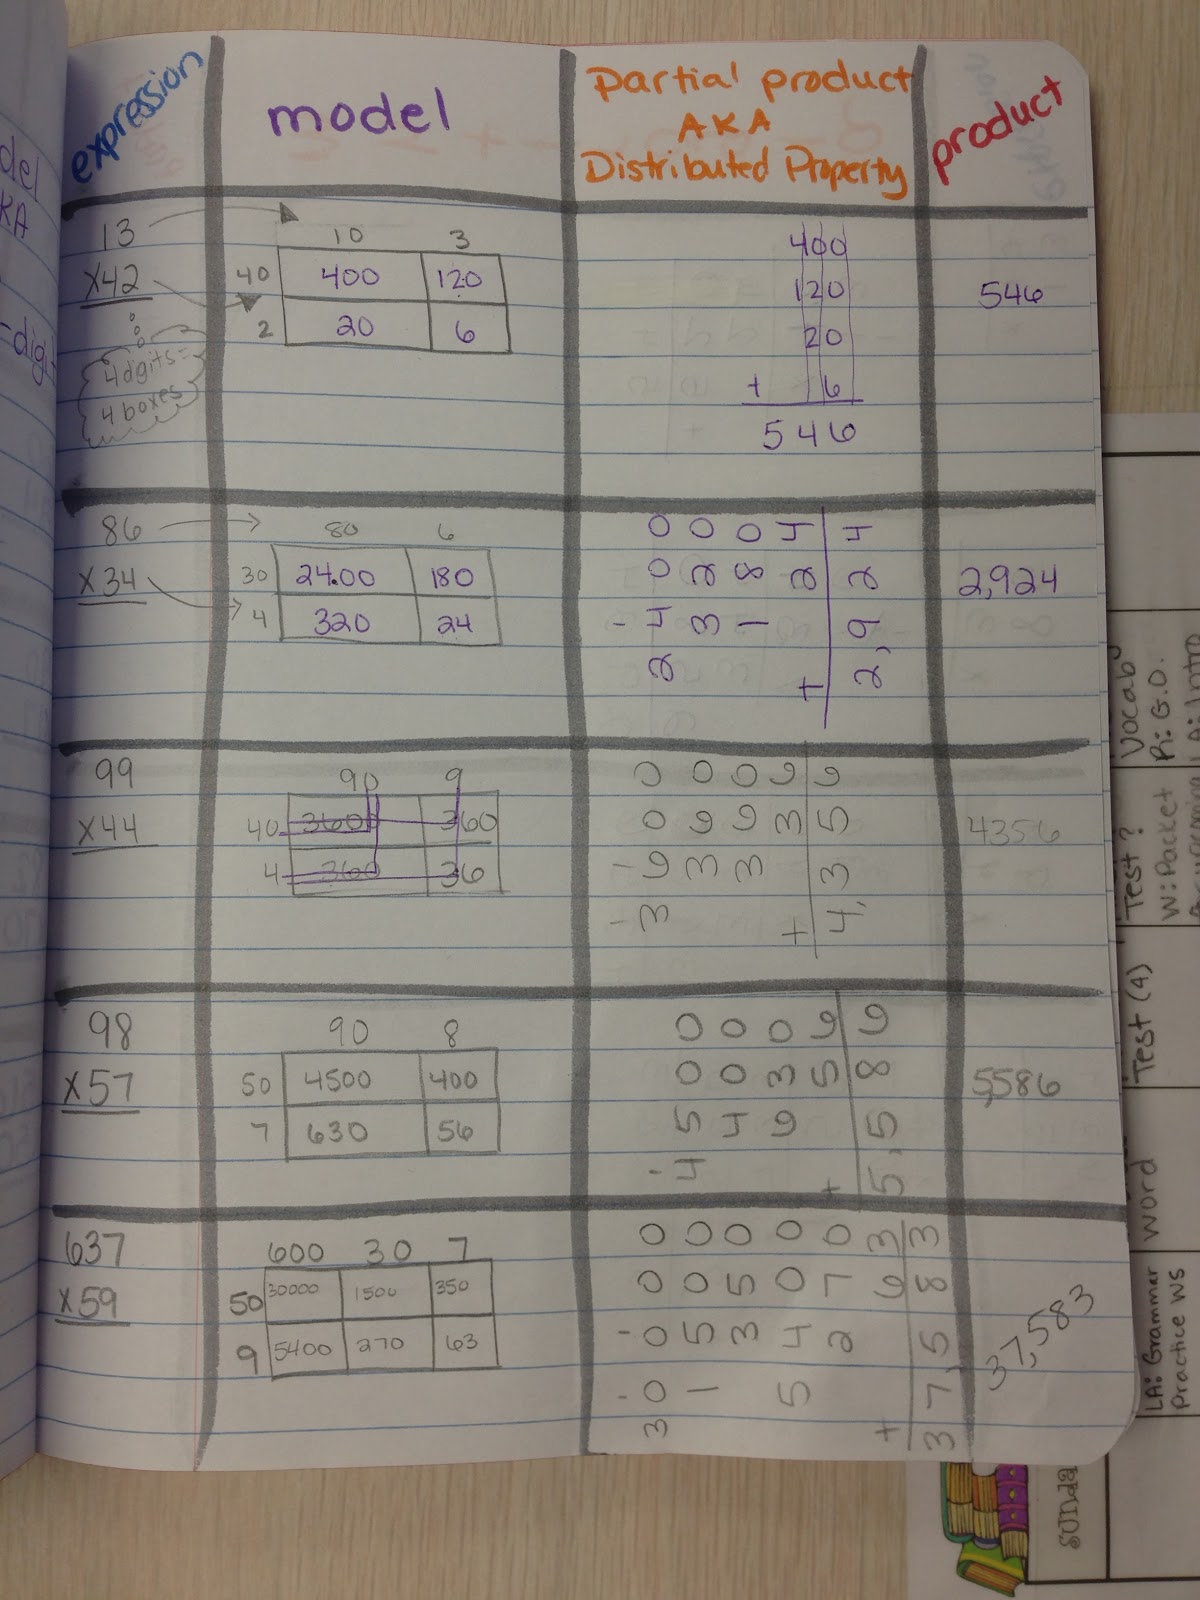 expression
model
Partial product
AKA
Distributed Property
product
13
x42
4 digits=
4 boxes
10 3
40 400 120
2 20 6
400
120
20
+ 6
546
546
86
x34
80 6
30 2400 180
4 320 24
2400
320
180
+ 24
2,924
2,924
99
x44
90 9
40 3600 360
4 360 36
3600
360
360
+ 36
4,356
4356
98
x57
90 8
50 4500 400
7 630 56
4500
400
630
+ 56
5,586
5,586
637
x59
600 30 7
50 30000 1500 350
9 5400 270 63
30000
1500
350
5400
270
+ 63
37,583
37,583
del
KA
-digit
Vocab
Pi: G.O.
Test?
W: Packet
Test (4)
word
LA: Grammar
Practice WS